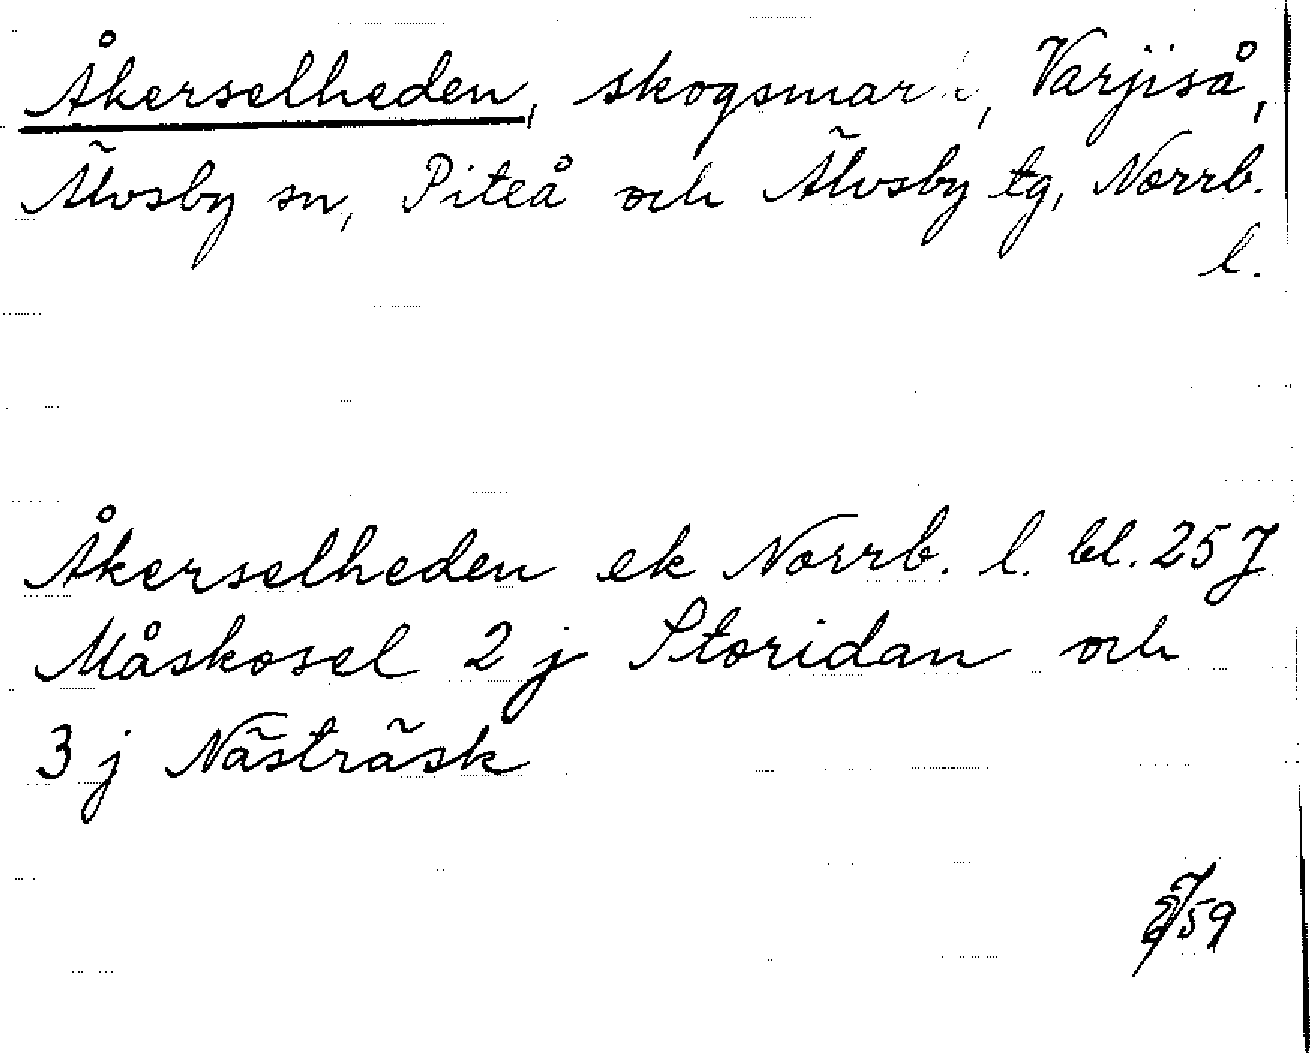 Åkerselheden, skogsmark, Varjiså,
Älvsby sn, Piteå och Älvsby tg, Norrb.
l.
Åkerselheden ek Norrb. l. bl. 25 J
Måskosel 2 j Storidan och
3 j Nästräsk
59